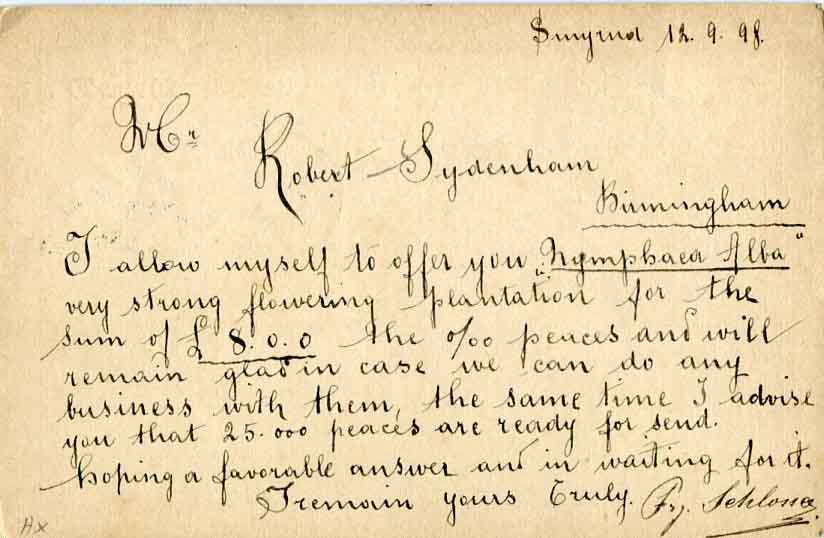 Smyrna 12. 9. 98.
Mr
Robert Sydenham
Birmingham
I allow myself to offer you „Nymphaea Alba"
very strong flowering plantation for the
sum of £ 8. 0. 0 the % peaces and will
remain glad in case we can do any
business with them, the same time I advise
you that 25.000 peaces are ready for send.
hoping a favorable answer and in waiting for it.
I remain yours truly.
Hx